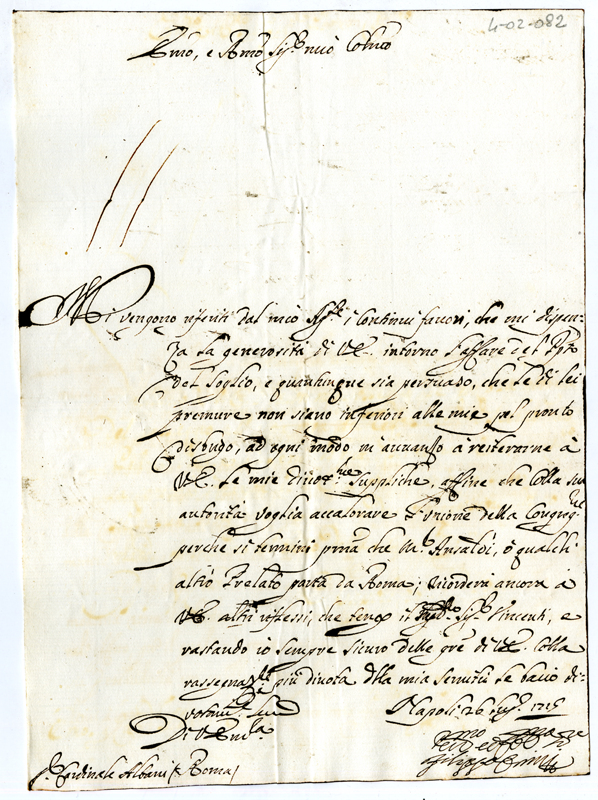 4-02-082
Emo, e Rmo Sig.r mio Colmo
Mi vengono riferiti dal mio Ag.te i continui favori, che mi dispen-
za la generosità di V.E. intorno l'affare del
del Soglio, e quantunque sia persuaso, che le di lei
premure non siano inferiori alle mie pel pronto
disbrigo, ad ogni modo m'avvanzo à reiterarne à
V.E. le mie divot.me suppliche, affine che colla sua
autorità voglia accalorare l'unione della Congrig.ne
perche si termini prima che M.r Ansaldi, ò qualch'
altro Prelato parta da Roma; ricorderà ancora à
V.E. altri riflessi, che tengo il Sig.r Vincenti, e
restando io sempre sicuro delle gre di V.E. colla
rassegna più divota della mia servitù le bacio di-
votam.te le
Di V. Em.la
Napoli 26 1715
S.r Cardinale Albani (Roma)